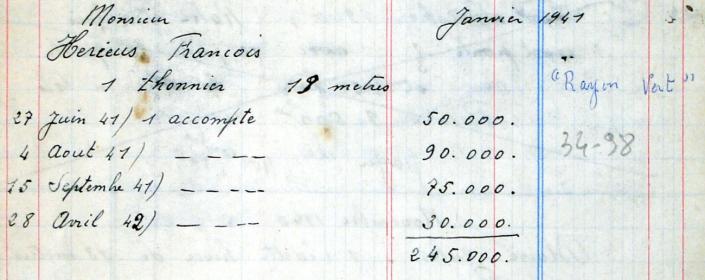 Monsieur Janvier 1941
Herieus Francois
1 thonnier 19 metres "Rayon Vert"
27 Juin 41) 1 accompte 50.000.
4 Aout 41) — — — — 90.000. 34-98
15 Septembre 41) — — — — 75.000.
28 Avril 42) — — — — 30.000.
245.000.